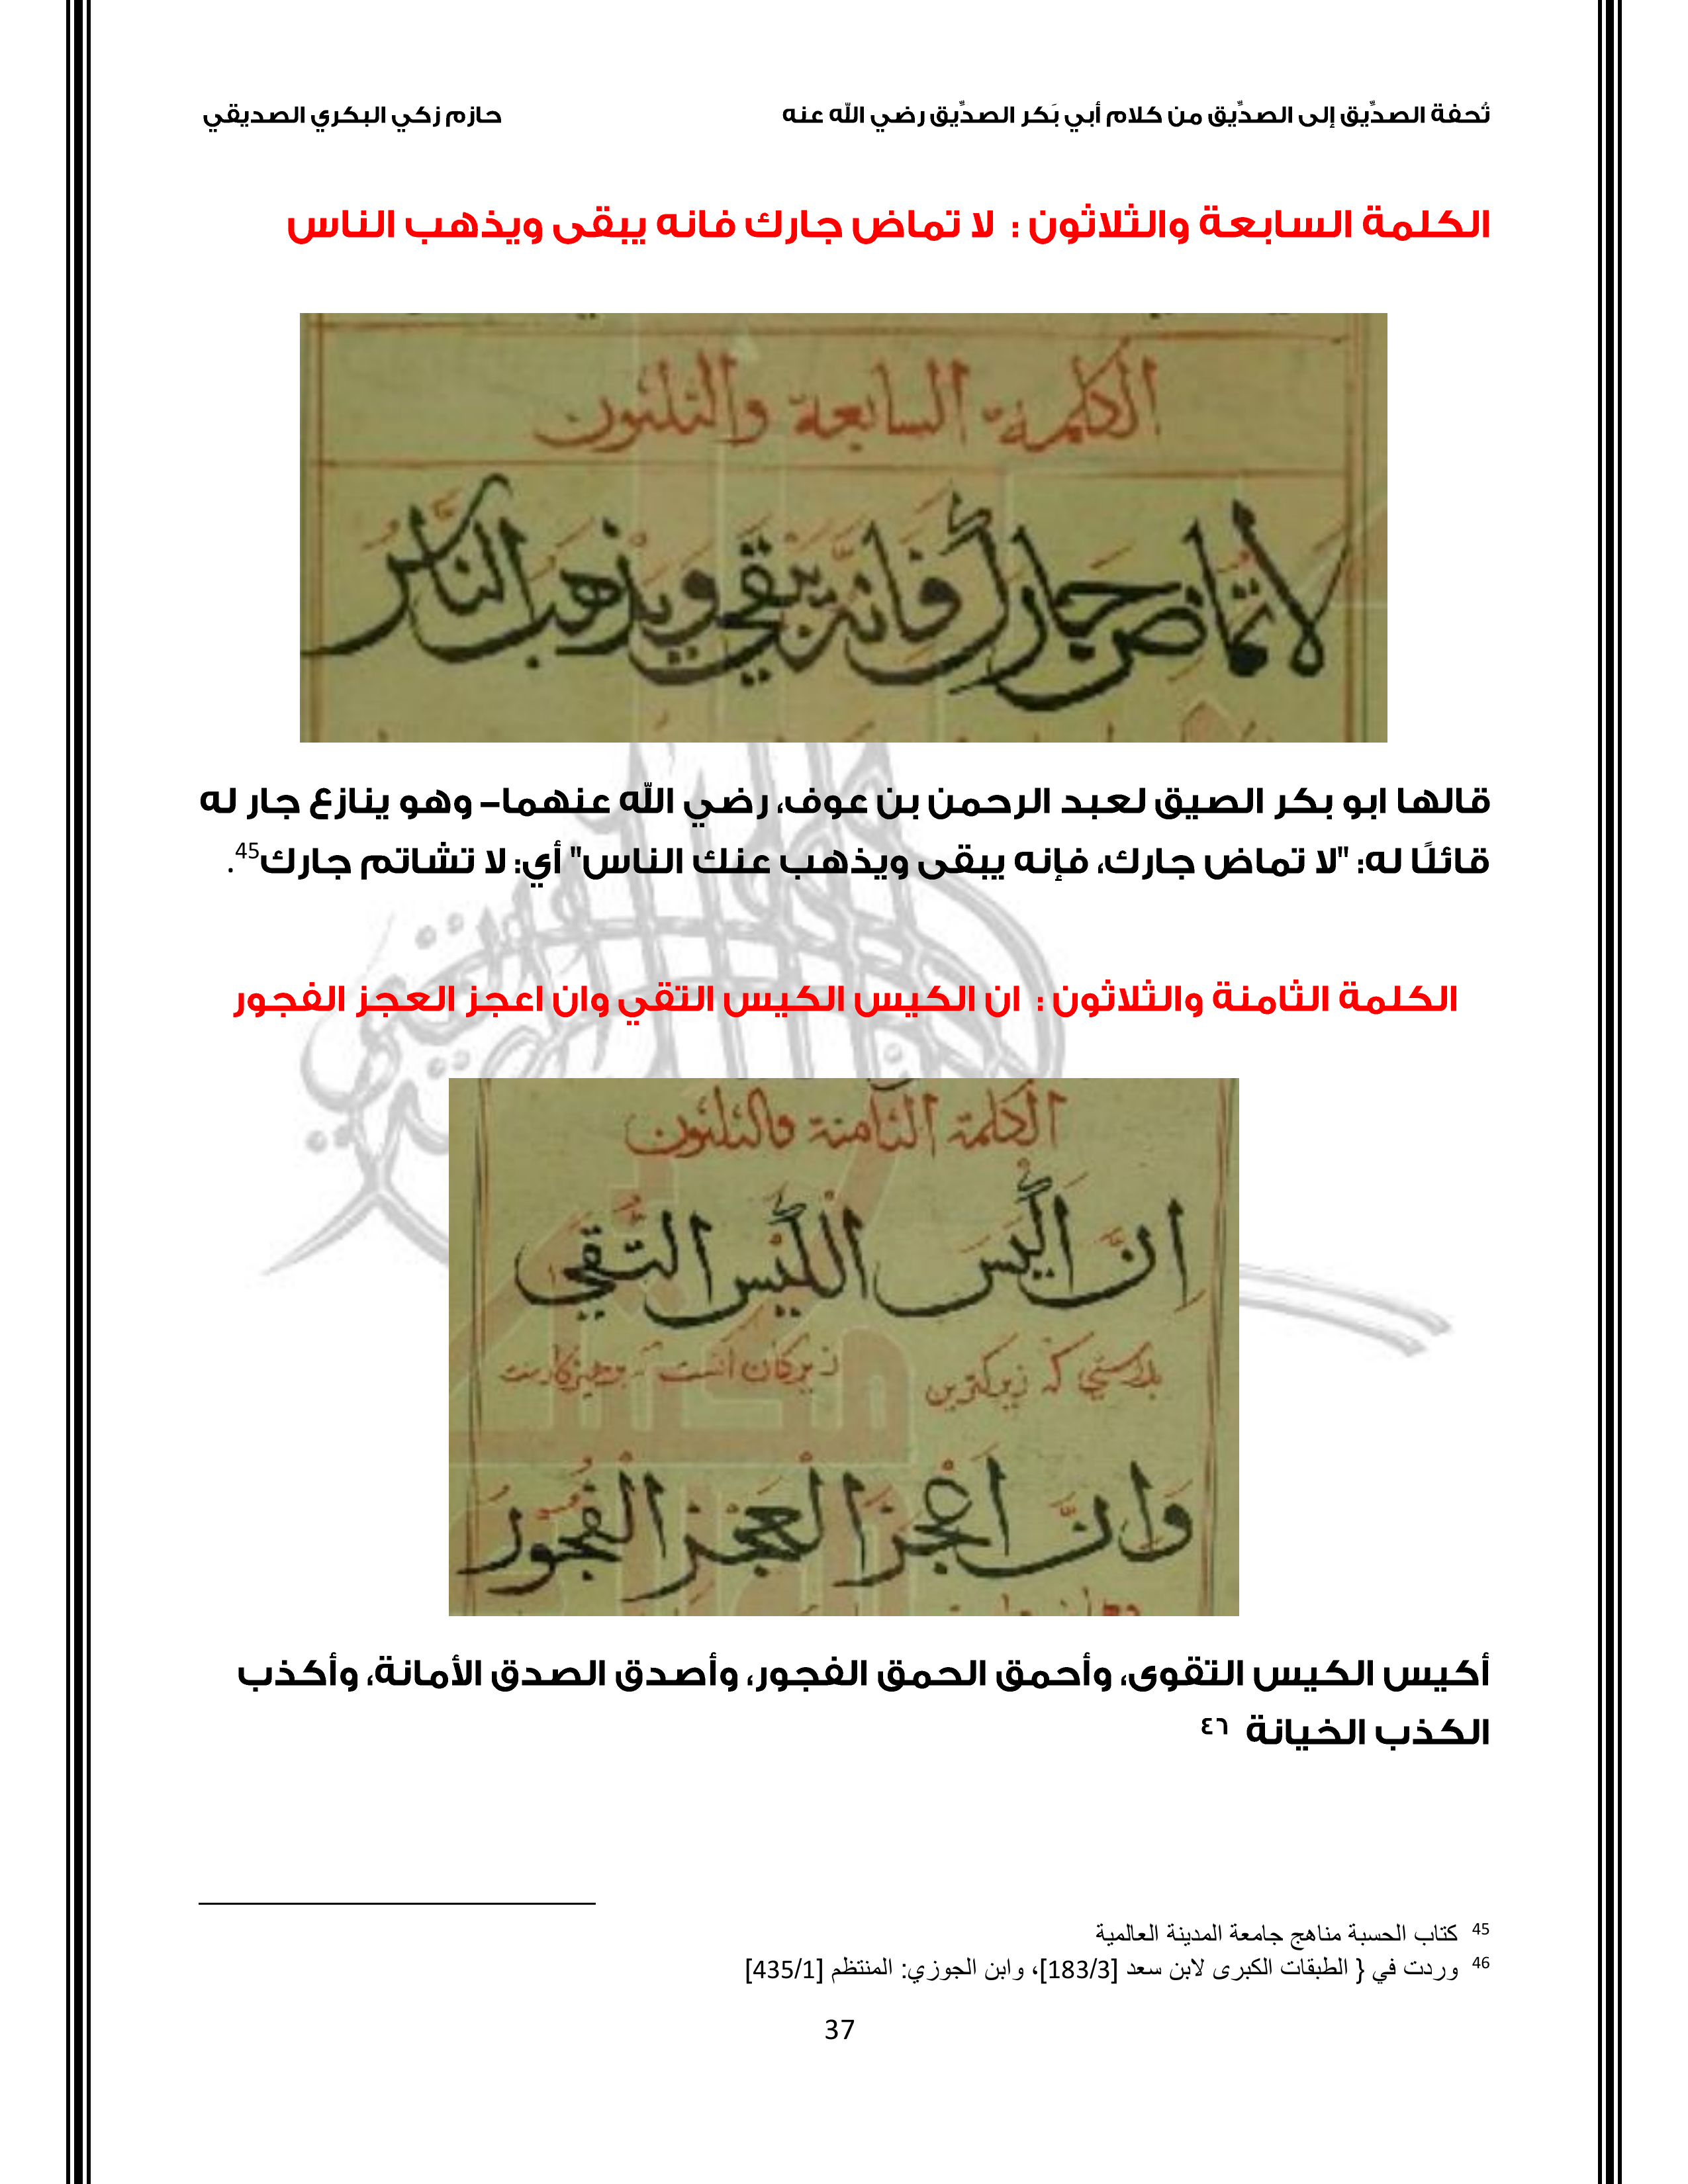 تُحفة الصدِّيق إلى الصدِّيق من كلام أبي بَكر الصدِّيق رضي الله عنه حازم زكي البكري الصديقي
الكلمة السابعة والثلاثون : لا تماض جارك فانه يبقى ويذهب الناس
الكلمة السابعة والثلثون
لا تُماضِ جَارَكَ فَانَّهُ يَبْقَي وَيَذْهَبُ النَّاسُ
قالها ابو بكر الصيق لعبد الرحمن بن عوف، رضي الله عنهما– وهو ينازع جار له
قائلًا له: "لا تماض جارك، فإنه يبقى ويذهب عنك الناس" أي: لا تشاتم جارك45.
الكلمة الثامنة والثلاثون : ان الكيس الكيس التقي وان اعجز العجز الفجور
الكلمة الثامنة والثلثون
اِنَّ اَكْيَسَ الْكَيْسِ التُّقَي
بدرستي كه زيركترين زيركان
وَاِنَّ اَعْجَزَ الْعَجْزِ الْفُجُورُ
أكيس الكيس التقوى، وأحمق الحمق الفجور، وأصدق الصدق الأمانة، وأكذب
الكذب الخيانة ٤٦
45 كتاب الحسبة مناهج جامعة المدينة العالمية
46 وردت في { الطبقات الكبرى لابن سعد [183/3]، وابن الجوزي: المنتظم [435/1]
37